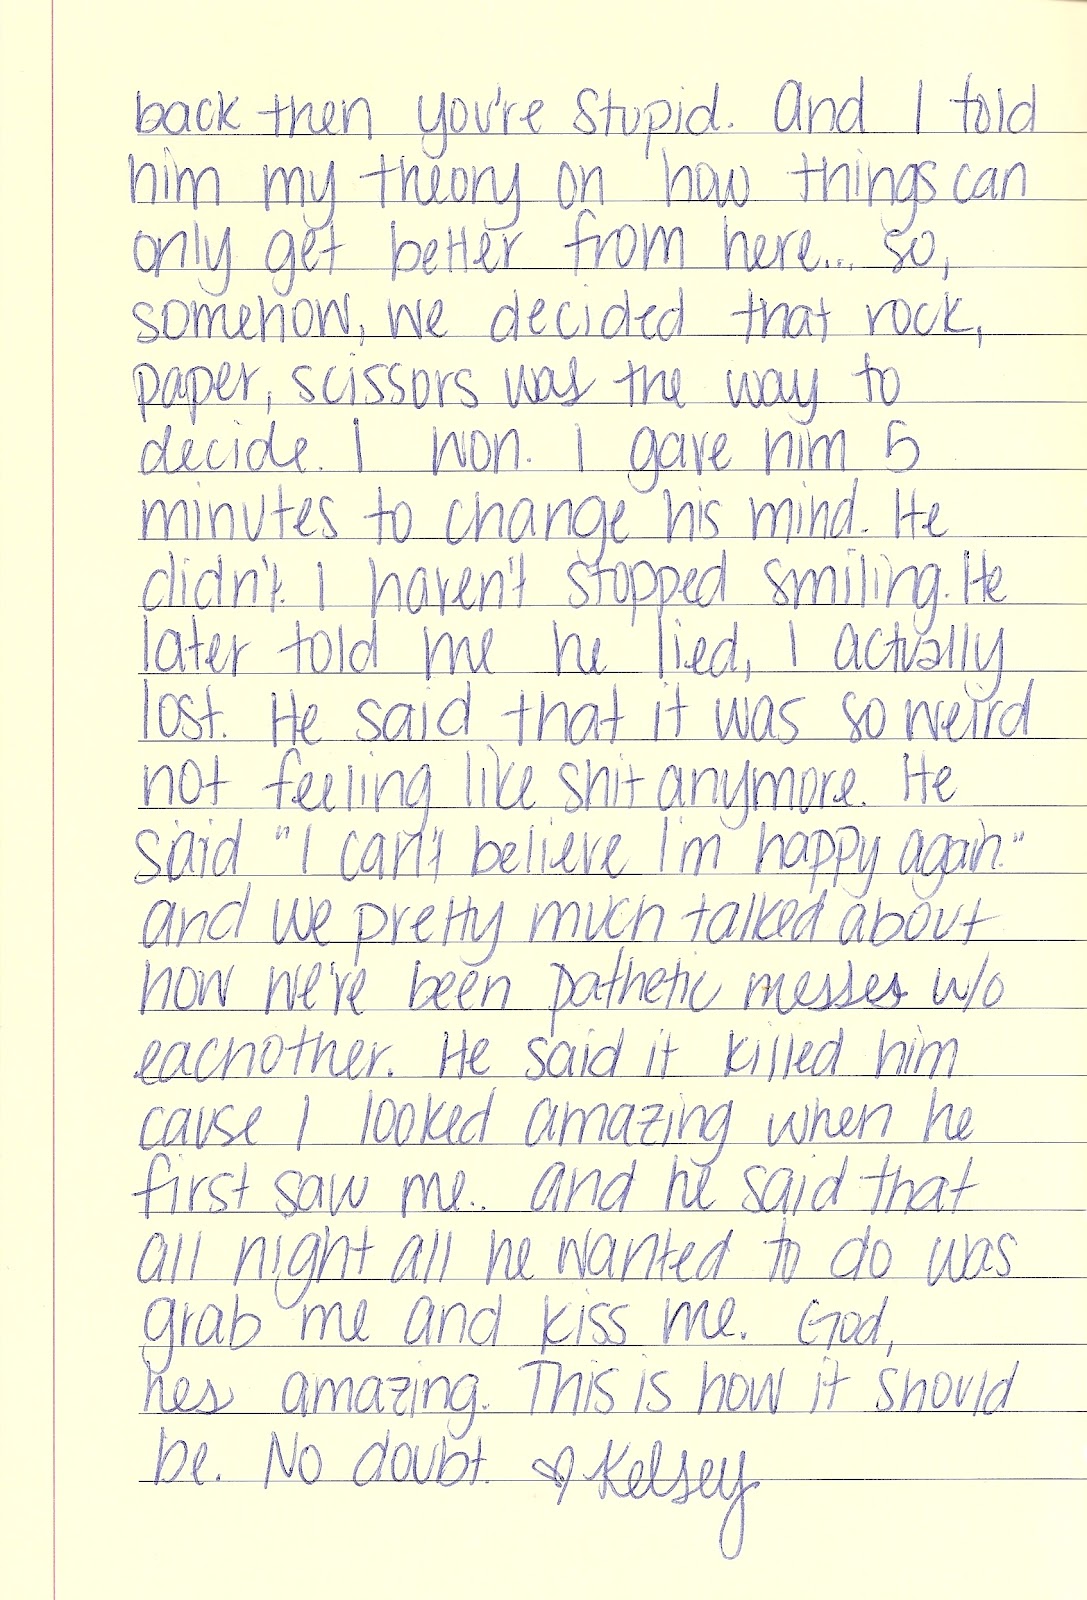 back then you're stupid. And I told
him my theory on how things can
only get better from here... so,
somehow, we decided that rock,
paper, scissors was the way to
decide. I won. I gave him 5
minutes to change his mind. He
didn't. I haven't stopped smiling. He
later told me he lied, I actually
lost. He said that it was so weird
not feeling like shit anymore. He
said "I can't believe I'm happy again."
and we pretty much talked about
how we've been pathetic messes w/o
eachother. He said it killed him
cause I looked amazing when he
first saw me.. and he said that
all night all he wanted to do was
grab me and kiss me. God,
hes amazing. This is how it should
be. No doubt. ♡ Kelsey